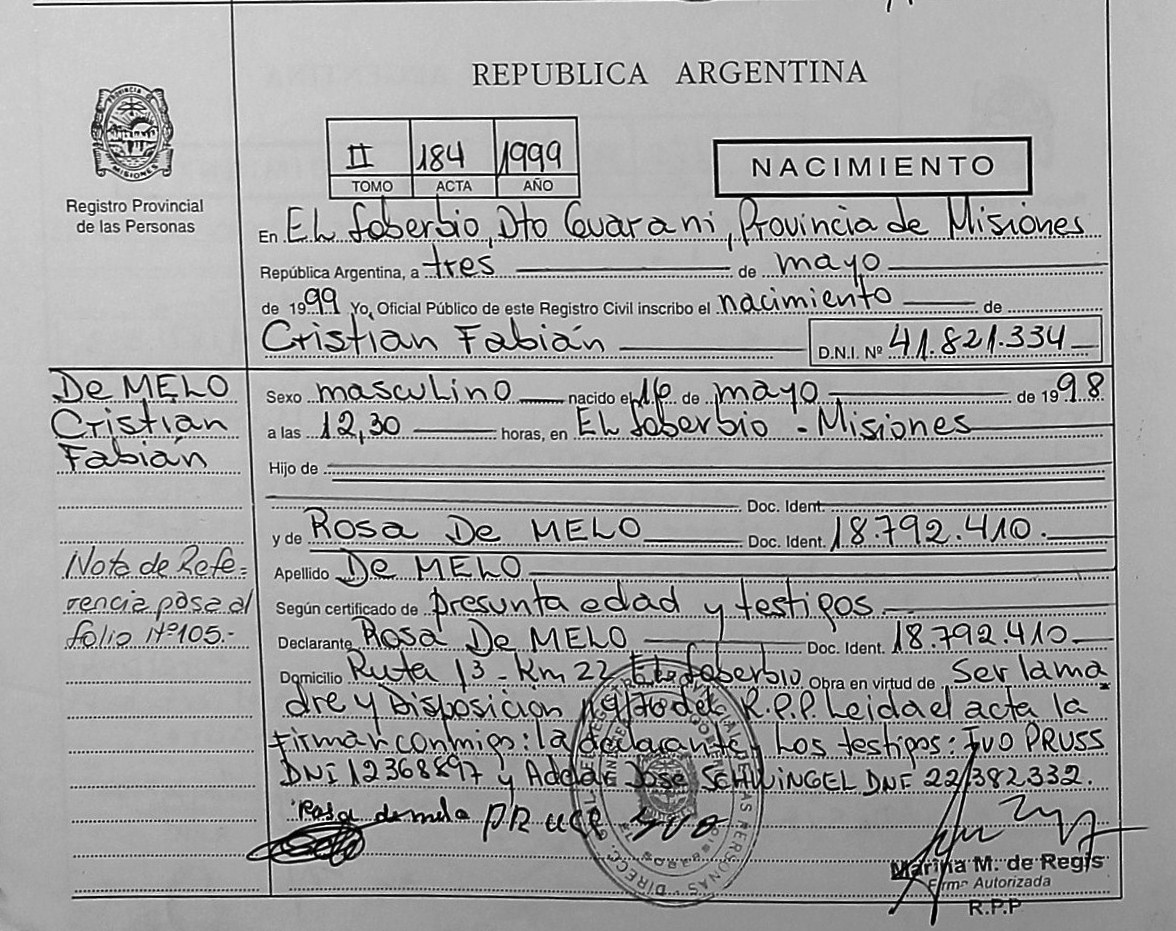 REPUBLICA ARGENTINA
PROVINCIA DE
MISIONES
Registro Provincial
de las Personas
II 184 1999
TOMO ACTA AÑO
NACIMIENTO
En EL Soberbio, Dto Guarani, Provincia de Misiones
República Argentina, a tres de mayo
de 1999 Yo, Oficial Público de este Registro Civil inscribo el nacimiento de
Cristian Fabián D.N.I. Nº 41.821.334
De MELO
Cristian
Fabián
Sexo masculino nacido el 16 de mayo de 1998
a las 12,30 horas, en EL Soberbio - Misiones
Hijo de
Doc. Ident.
y de Rosa De MELO Doc. Ident. 18.792.410.
Nota de Refe-
rencia pasa al
folio Nº 105.-
Apellido De MELO
Según certificado de presunta edad y testigos
Declarante Rosa De MELO Doc. Ident. 18.792.410
Domicilio Ruta 13 - Km 22 EL Soberbio Obra en virtud de Ser la ma
dre y Disposición 19/76 del R.P.P. Leida el acta la
firman conmigo: la declarante, Los testigos: IVO PRUSS
DNI 12368897 y Adelar José SCHWINGEL DNI 22.382.332.
Rosa de melo
Marina M. de Regis
Firma Autorizada
R.P.P